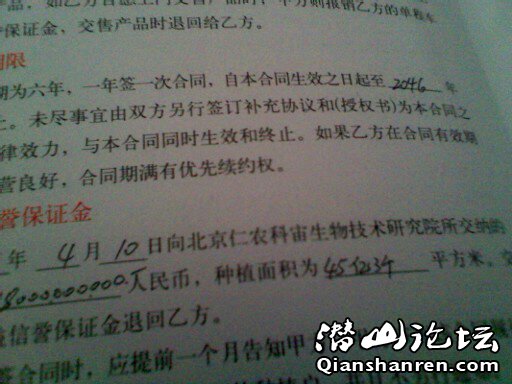 品，如乙方自愿上门交售产品时，甲方则报销乙方的单程车
保证金，交售产品时退回给乙方。
期限
期为六年，一年签一次合同，自本合同生效之日起至 2046 年
止。未尽事宜由双方另行签订补充协议和(授权书)为本合同之
律效力，与本合同同时生效和终止。如果乙方在合同有效期
营良好，合同期满有优先续约权。
誉保证金
年 4 月 10 日向北京仁农科宙生物技术研究院所交纳的
8000000000.人民币，种植面积为 平方米。
信誉保证金退回乙方。
签合同时，应提前一个月告知甲
潜山论坛
Qianshanren.com